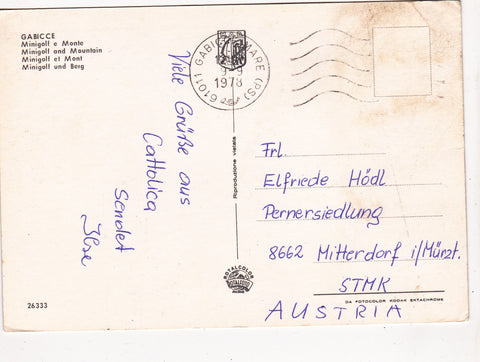 GABICCE
Minigolf e Monte
Minigolf and Mountain
Minigolf et Mont
Minigolf und Berg
61011 GABICCE MARE (PS)
9-9
1978
Viele Grüße aus
Cattolica
sendet
Ilse
Riproduzione vietata
Frl.
Elfriede Hödl
Pernersiedlung
8662 Mitterdorf i/Mürzt.
STMK
AUSTRIA
ROTALCOLOR
ROTALFOTO
DA FOTOCOLOR KODAK EKTACHROME
26333